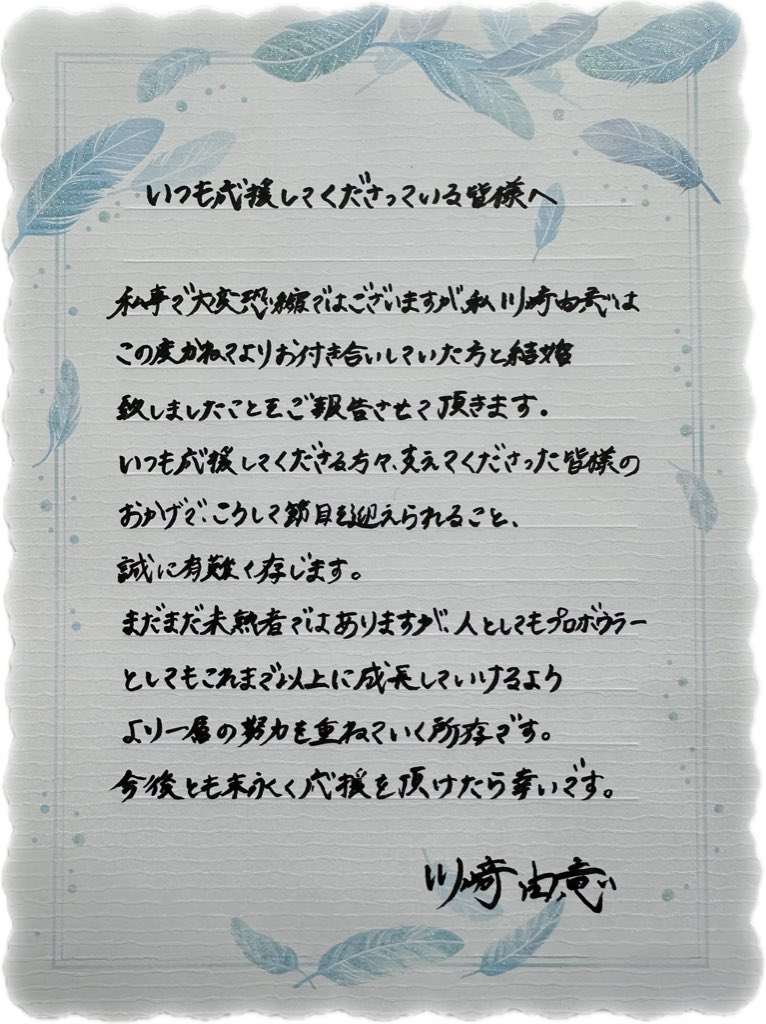 いつも応援してくださっている皆様へ
私事で大変恐縮ではございますが、私川﨑由意は
この度かねてよりお付き合いしていた方と結婚
致しましたことをご報告させて頂きます。
いつも応援してくださる方々、支えてくださった皆様の
おかげで、こうして節目を迎えられること、
誠に有難く存じます。
まだまだ未熟者ではありますが、人としてもプロボウラー
としてもこれまで以上に成長していけるよう
より一層の努力を重ねていく所存です。
今後とも末永く応援を頂けたら幸いです。
川﨑由意